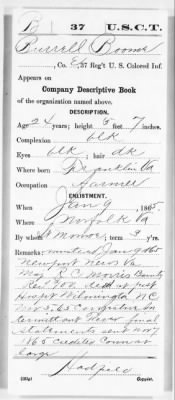 B | 37 | U.S.C.T.
Burrell Boomer
, Co. E, 37 Reg't U. S. Colored Inf.
Appears on
Company Descriptive Book
of the organization named above.
DESCRIPTION.
Age 24 years; height 5 feet 7 inches.
Complexion blk
Eyes blk ; hair dk
Where born Franklin Va
Occupation Farmer
ENLISTMENT.
When Jany 9, 1865
Where Norfolk Va
By whom ; term 3 y'rs.
Remarks: mustered Jany 9 1865
Newport News Va
May R C Morris Bounty
Rec'd 100. died at post
Hospt Wilmington NC
Nov 3. 65 Congestive In
termittent Fever final
statements sent nov 7
1865 Credited Conn at
large
Hadfield
Copyist.